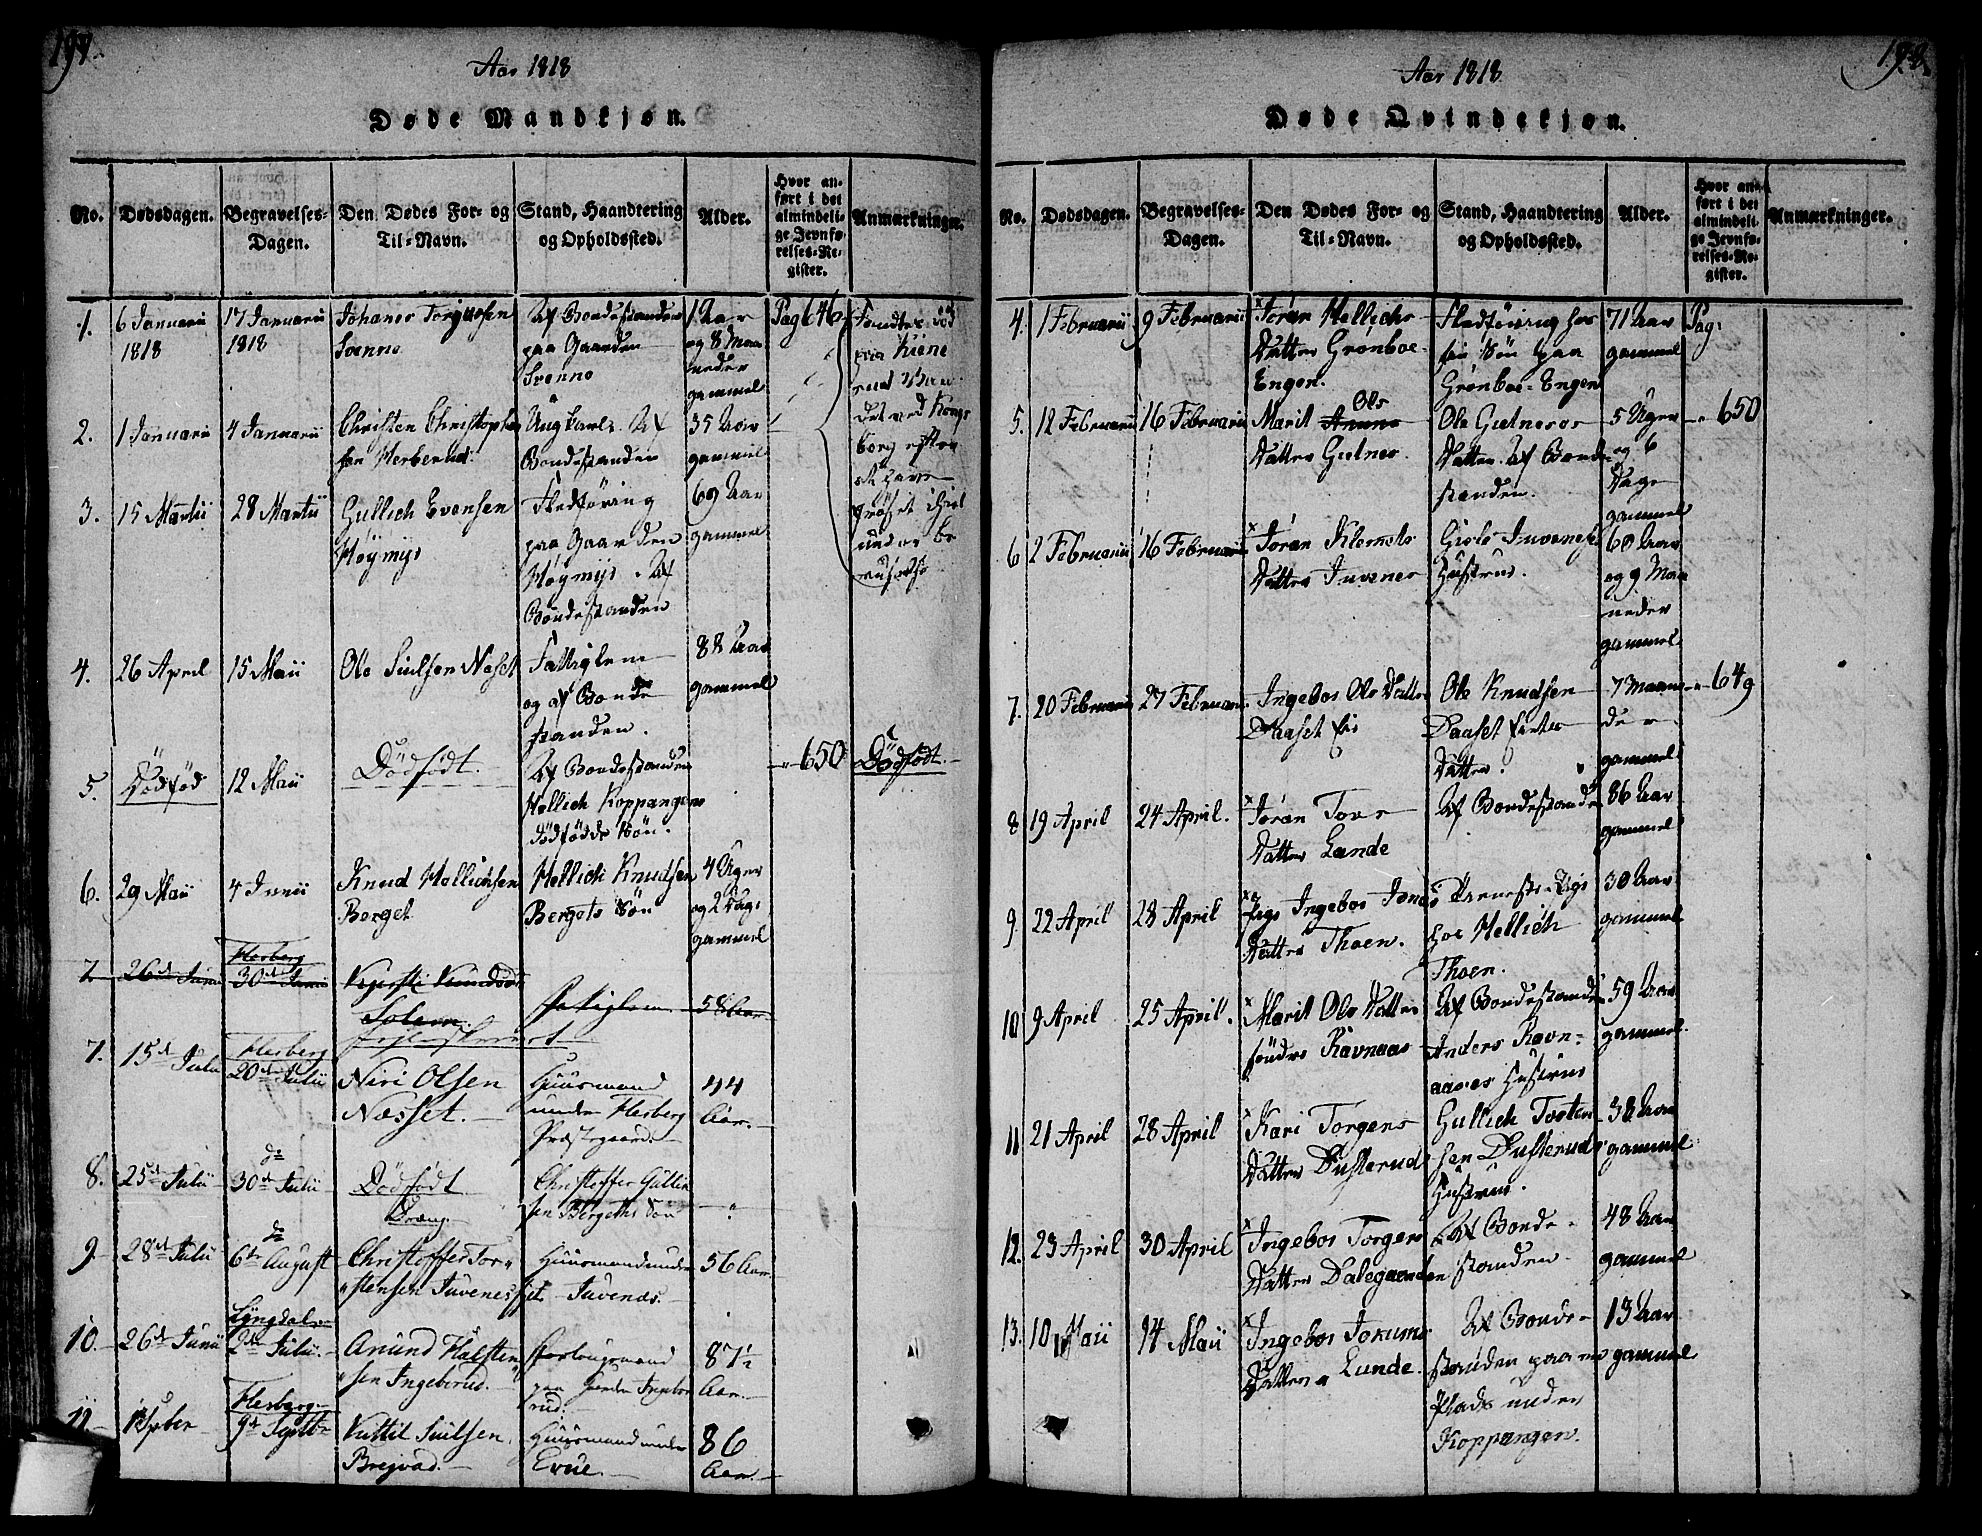 197.
Aar 1818
Døde Mandkjøn.
No.
Dødsdagen.
Begravelses-
Dagen.
Den Dødes For- og
Til-Navn.
Stand, Haandtering
og Opholdssted.
Alder.
Hvor an-
ført i det
almindeli-
ge Jevnfø-
relses-Re-
gister.
Anmærkninger.
1.
6 Januarii
1818
17 Januarii
1818
Johanes
Svenne
Af Bondestanden
paa Gaarden
Svenne
12 Aar
og 8 Maa
neder
gammel
Pag 646
Fandtes død
paa Kiene
rud
det ved Kongs
borg efter
under be
2.
1 Januarii
4 Januarii
Christen Christophe
sen Herberud.
Ungkarl. Af
Bondestanden
35 Aar
gammel
3.
15 Martii
28 Martii
Gullich Evensen
Høymyr
Fledføring
paa Gaarden
Høymyr. Af
Bondestanden
69 Aar
gammel
4.
26 April
15 Maii
Ole Siulsen Næset
Fattiglem
og af Bonde
standen.
88 Aar
gammel
5.
Dødfød
12 Maii
Dødfødt.
Af Bondestanden
Hellich Koppangens
dødfødde Søn.
650
Dødfødt.
6.
29 Maii
4 Junii
Knud Hellichsen
Berget
Hellich Knudsen
Bergets Søn
4 Uger
og 2 Dage
gammel
7
26de Junii
Flesberg
30de Junii
Kjersti Knudsd
Solem
Fattiglem
58 Aar
7.
15de Julii
Flesberg
20de Julii
Niri Olsen
Næsset.
Huusmand
under Flesberg
Præstegaard.
44
Aar.
8.
25de Julii
do
30de Julii
Dødfødt
Dreng
Christoffer Gulli
sen Bergets Søn
"
9.
28de Julii
do
6te August
Christoffer Tor-
stensen Juvenes
Huusmand under
Juvenæs.
56 Aar
10.
26de Junii
Lyngdal
2den Julii.
Amund Halsten
sen Ingeberud.
paa Gaarden Ingebe
rud.
87½
Aar.
11.
Flesberg
9de Septbr
Kittil Siulsen
Bregvad.
Huusmand under
Evue.
86
Aar.
198.
Aar 1818
Døde Qvindekjøn.
No.
Dødsdagen.
Begravelses-
Dagen.
Den Dødes For- og
Til-Navn.
Stand, Haandtering
og Opholdssted.
Alder.
Hvor an-
ført i det
almindeli-
ge Jevnfø-
relses-Re-
gister.
Anmærkninger.
4.
1 Februarii
9 Februarii
Jøran Hellichs
Datter Grønboe-
Engen.
Fledføring hos
sin Søn paa
Grønboe-Engen
71 Aar
gammel
Pag:
5.
12 Februarii
16 Februarii
Ols
Marit Anune
Datter Gutnes.
Ole Gutneses
Datter. Af Bonde
standen.
5 Uger
og 6
Dage
gammel
650
6
2 Februarii
16 Februarii
Jøran Klemets
Datter Juvenes
Giøls Juvenes
Hustrue.
60 Aar
og 9 Maa
neder
gammel
7.
20 Februarii
27 Februarii
Ingebor Ols Datter
Daaset
Ole Knudsen
Daaset
Datter.
7 Maane
der
gammel
649
8
19 April
24 April.
Jøran Tors
Datter Lunde
Af Bondestanden
86 Aar
gammel
9.
22 April
28 April
Pige Ingebor Jons
Datter Thoen.
Tieneste-Pige
hos Hellich
Thoen.
30 Aar
gammel
10
9 April
25 April.
Marit Ols Datter
søndre Ravnaas
Af Bondestanden
Anders Ravn-
aases Hustrue
59 Aar
gammel
11
21 April
28 April
Kari Torgens
Datter Dusterud
Gullich Tosten
sen Dusterud
Hustrue.
38 Aar
gammel
12.
23 April
30 April
Ingebor Torgers
Datter Dalegaarden
Af Bonde-
standen
48 Aar
gammel
13.
10 Maii
14 Maii
Ingebor Jokums
Datter Lunde.
Af Bonde-
standen paa en
Plads under
Koppangen.
13 Aar
gammel